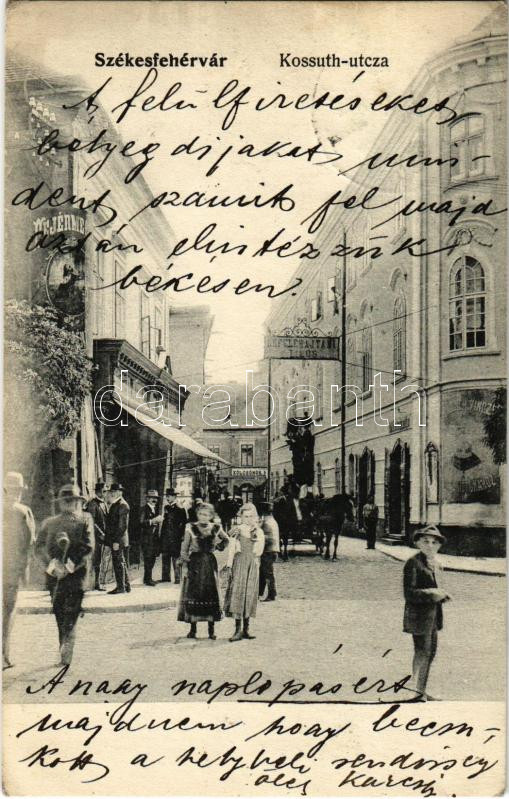 Székesfehérvár Kossuth-utcza
A felülfizetéseket
bélyegdijakat min-
dent szamits fel majd
aztán elintézzük
békésen.
BEFELÉ HAJTANI
TILOS
KÖLCSÖNÖK
darabanth
A nagy naplopásért
majdnem hogy becsu-
kott a helybeli rendőrség
ölel Karcsi.